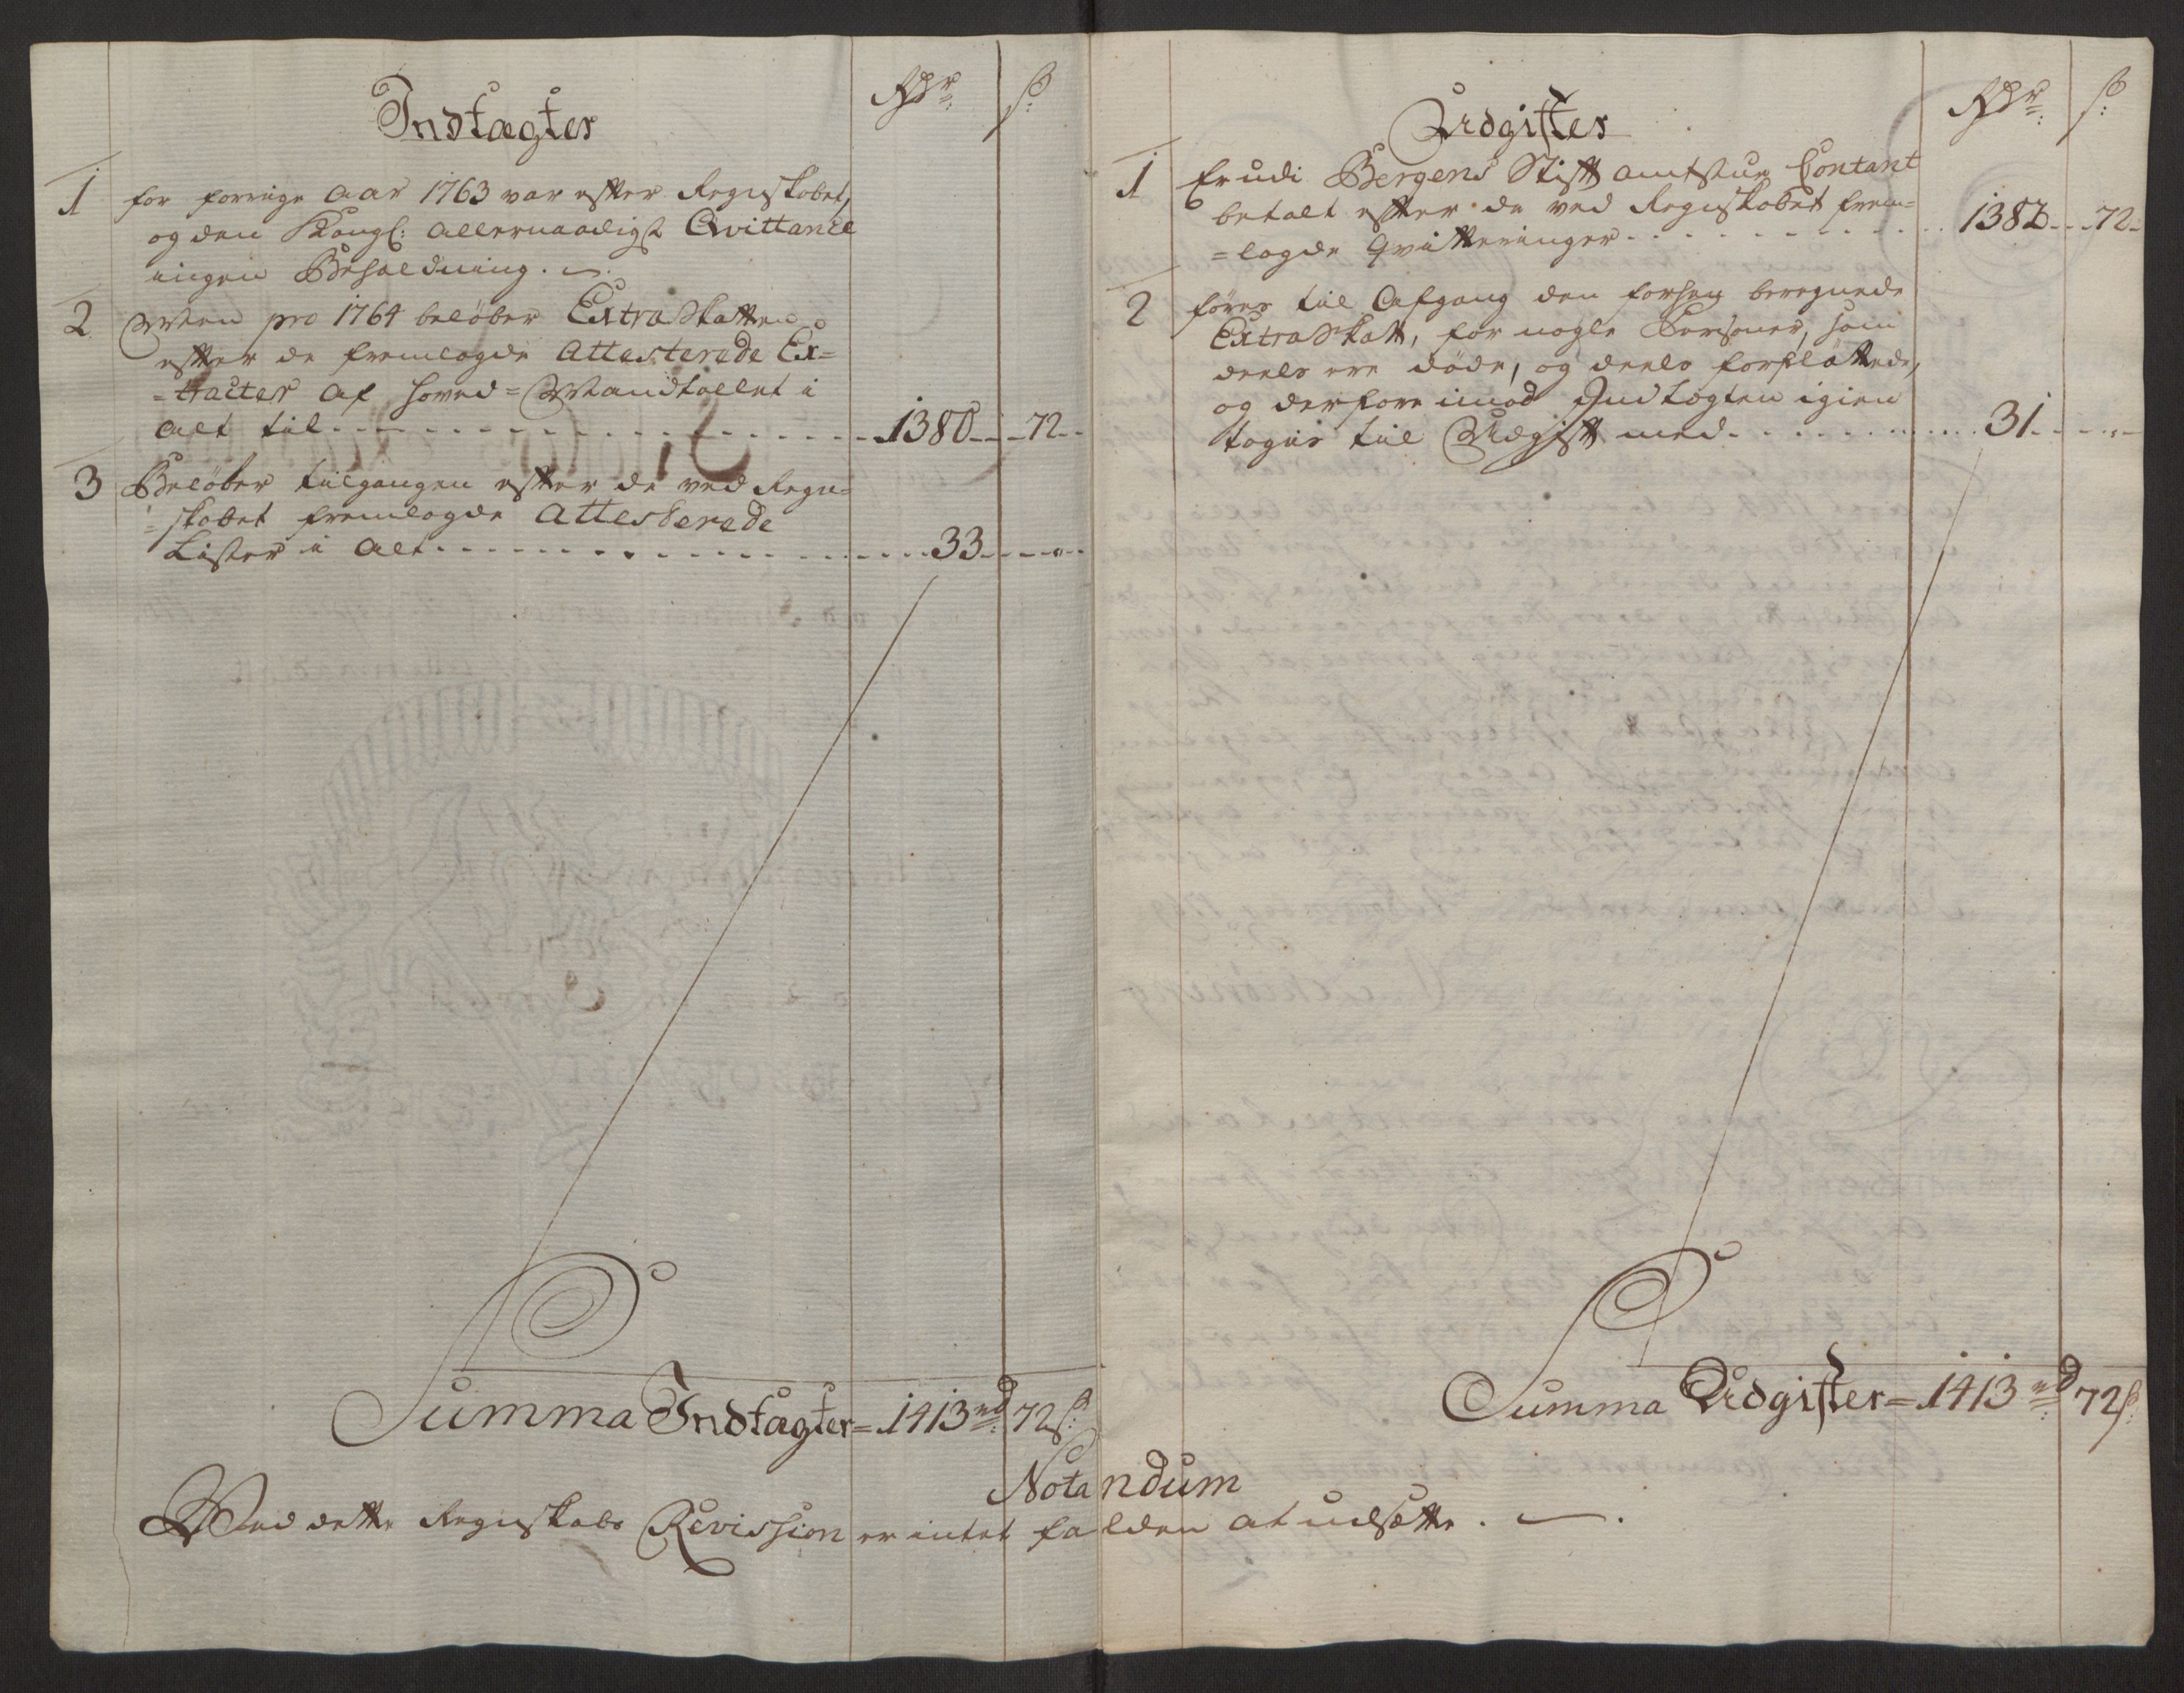 Indtægter
Rdr: ß:
1 for forrige Aar 1763 var efter Regnskabet,
og den Kongl: Allernaadigst Qvittance
ingen Beholdning.
2 Men pro 1764 beløber Extra Skatten
efter de fremlagde Attesterede Ex=
=tracter af Hoved=Mandtallet i
Alt til 1380 72
3 Beløber tilgangen efter de ved Regn=
=skabet fremlagde Attesterede
Lister i Alt 33
Summa Indtægter = 1413 rd: 72 ß:
Udgifter
Rdr: ß:
1 Bergens Stift Amtstue Contant
betalt efter de ved Regnskabet frem=
=lagde Qvitteringer 1382 72
2 føres til Afgang den forhen beregnede
Extra Skatt, for nogle Personer, som
deels ere døde, og deels forfløttede,
og derfore imod Indtægten igien
tages til Udgift med 31
Summa Udgifter = 1413 rd: 72 ß:
Notandum
Ved dette Regnskabs Revission er intet falden at udsætte.